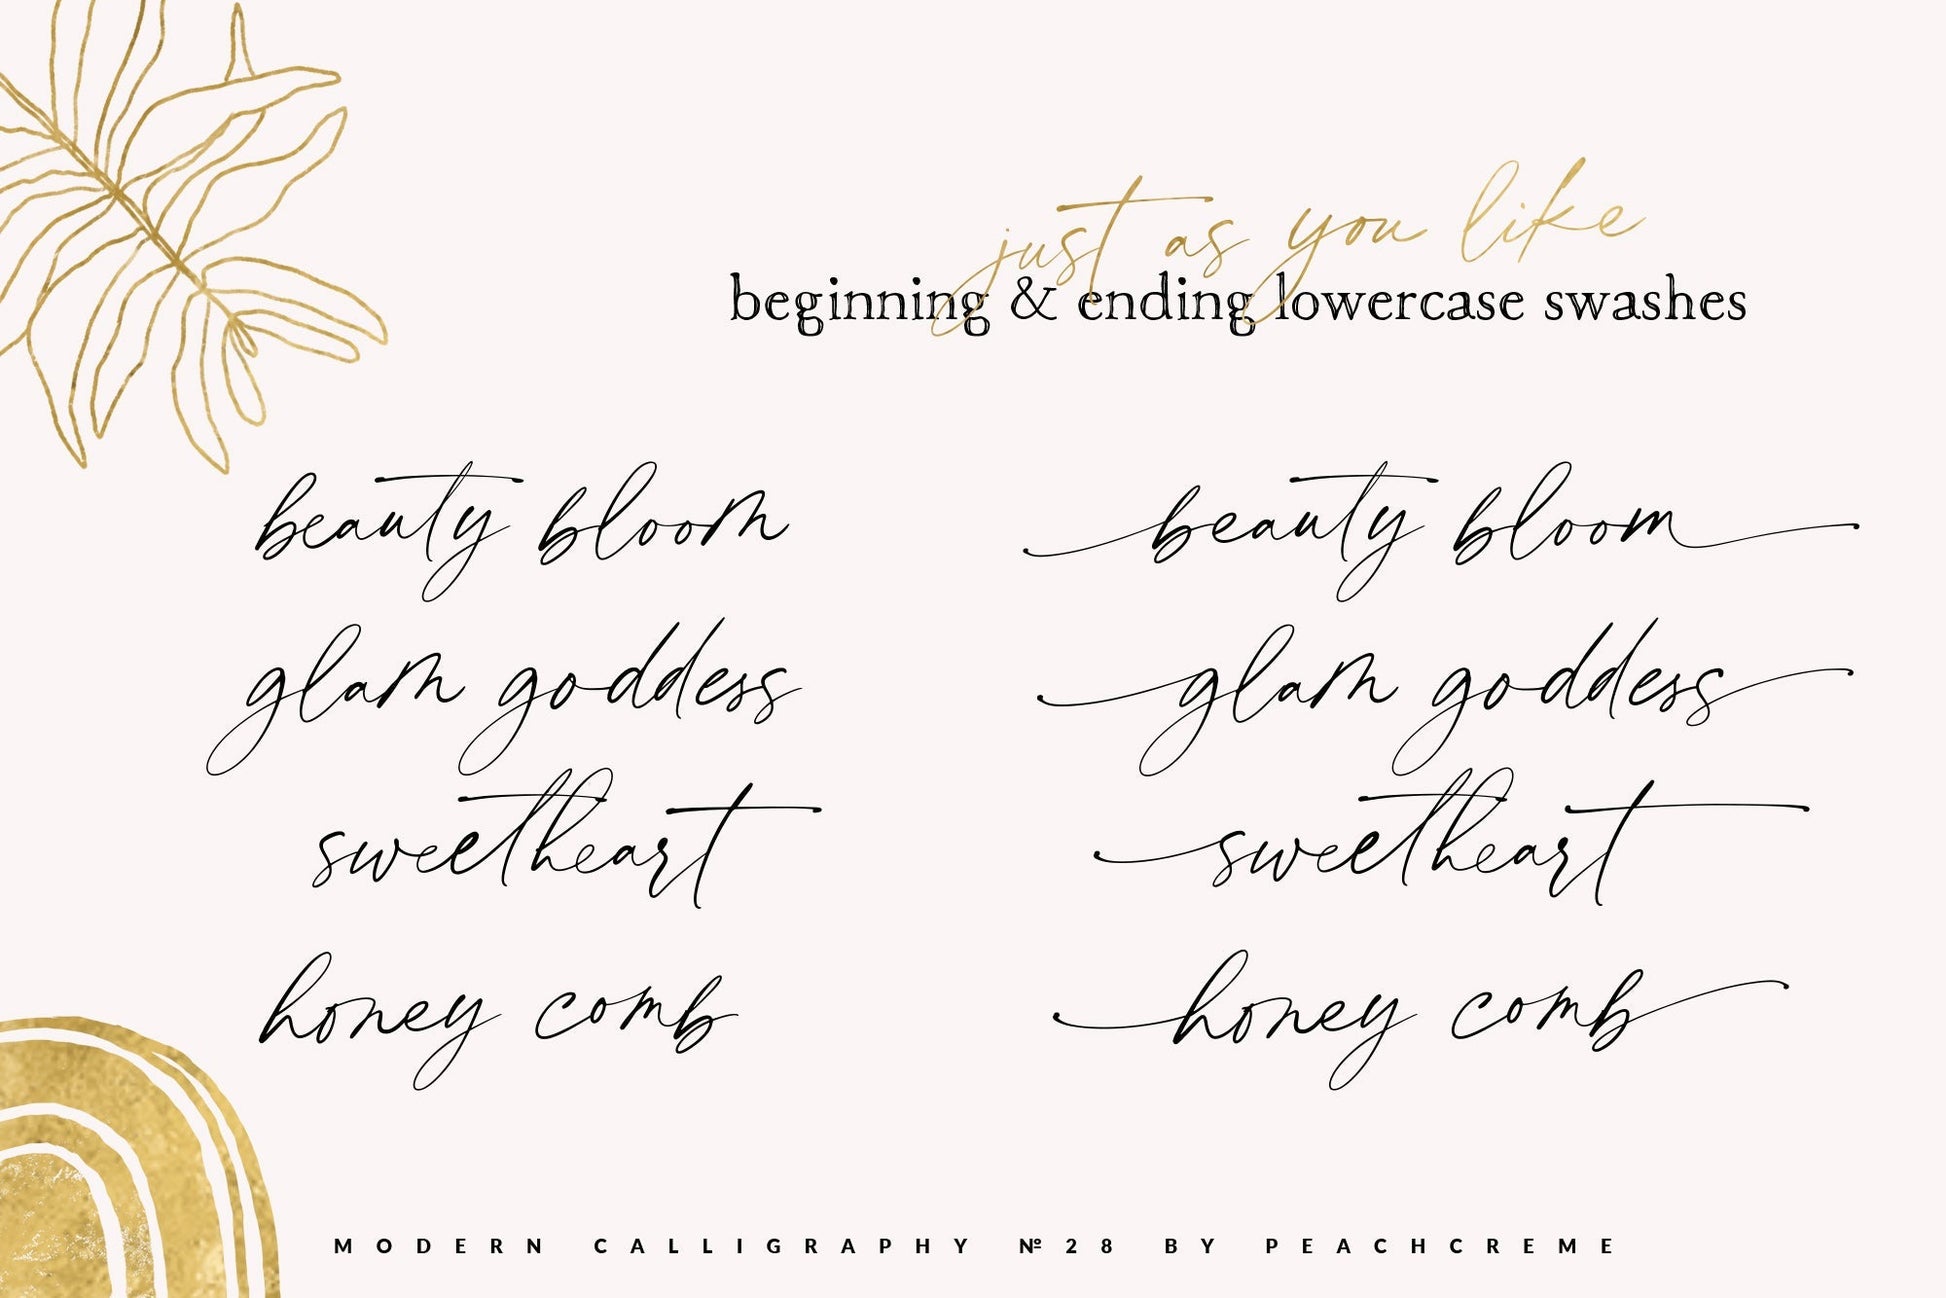 just as you like
beginning & ending lowercase swashes
beauty bloom
glam goddess
sweetheart
honey comb
beauty bloom
glam goddess
sweetheart
honey comb
MODERN CALLIGRAPHY №28 BY PEACHCREME